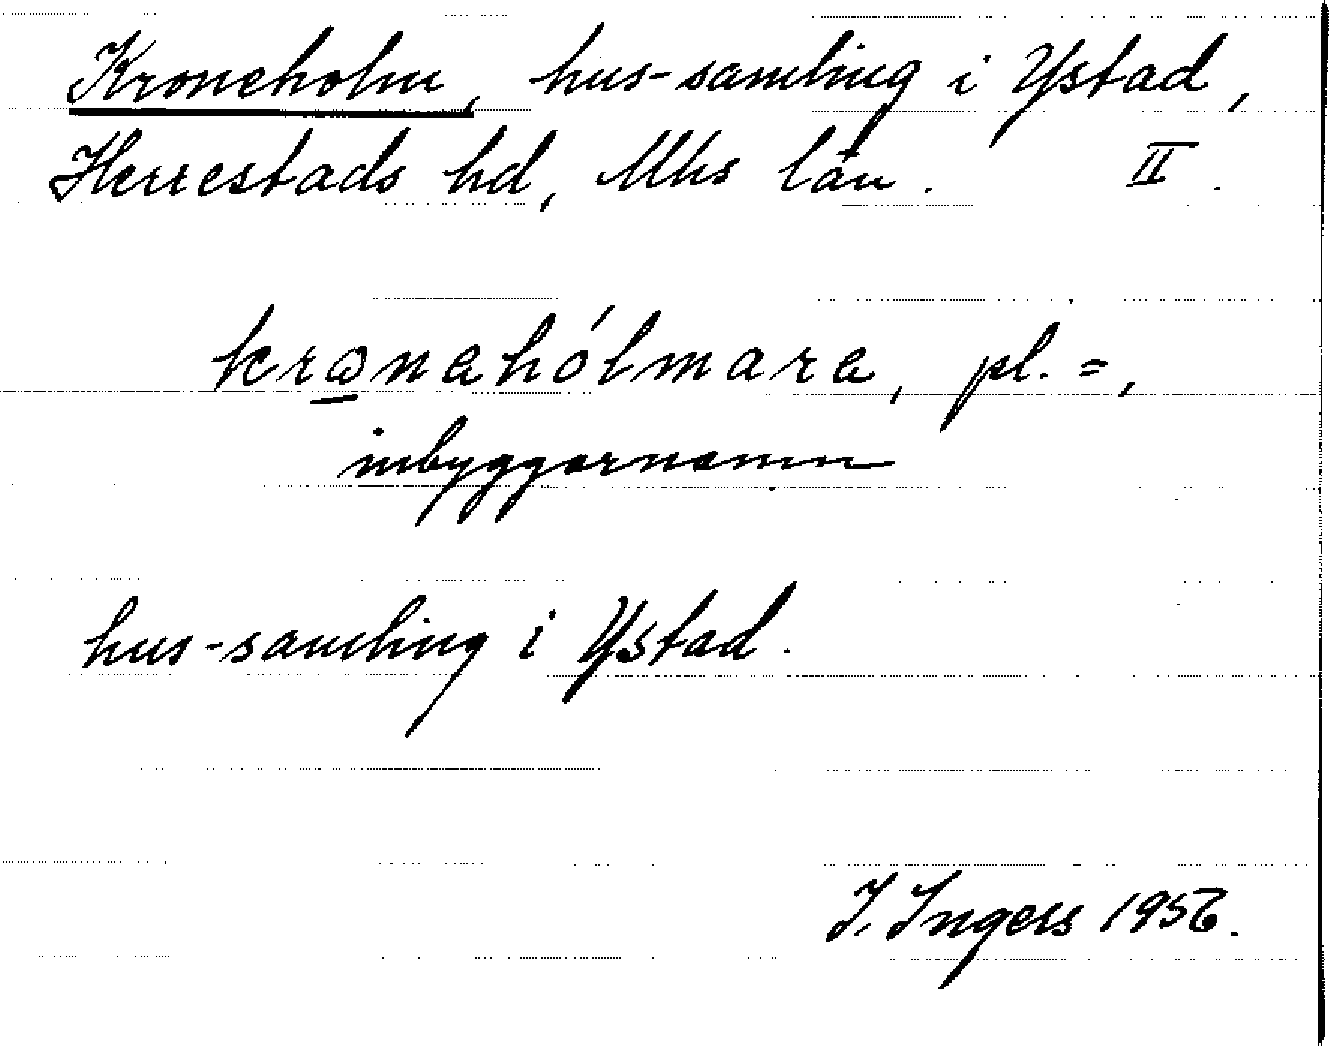 Kroneholm, hus-samling i Ystad,
Herrestads hd, Mhs län. II.
krɷnahólmara, pl. =,
inbyggarnamn
hus-samling i Ystad.
I. Ingers 1956.